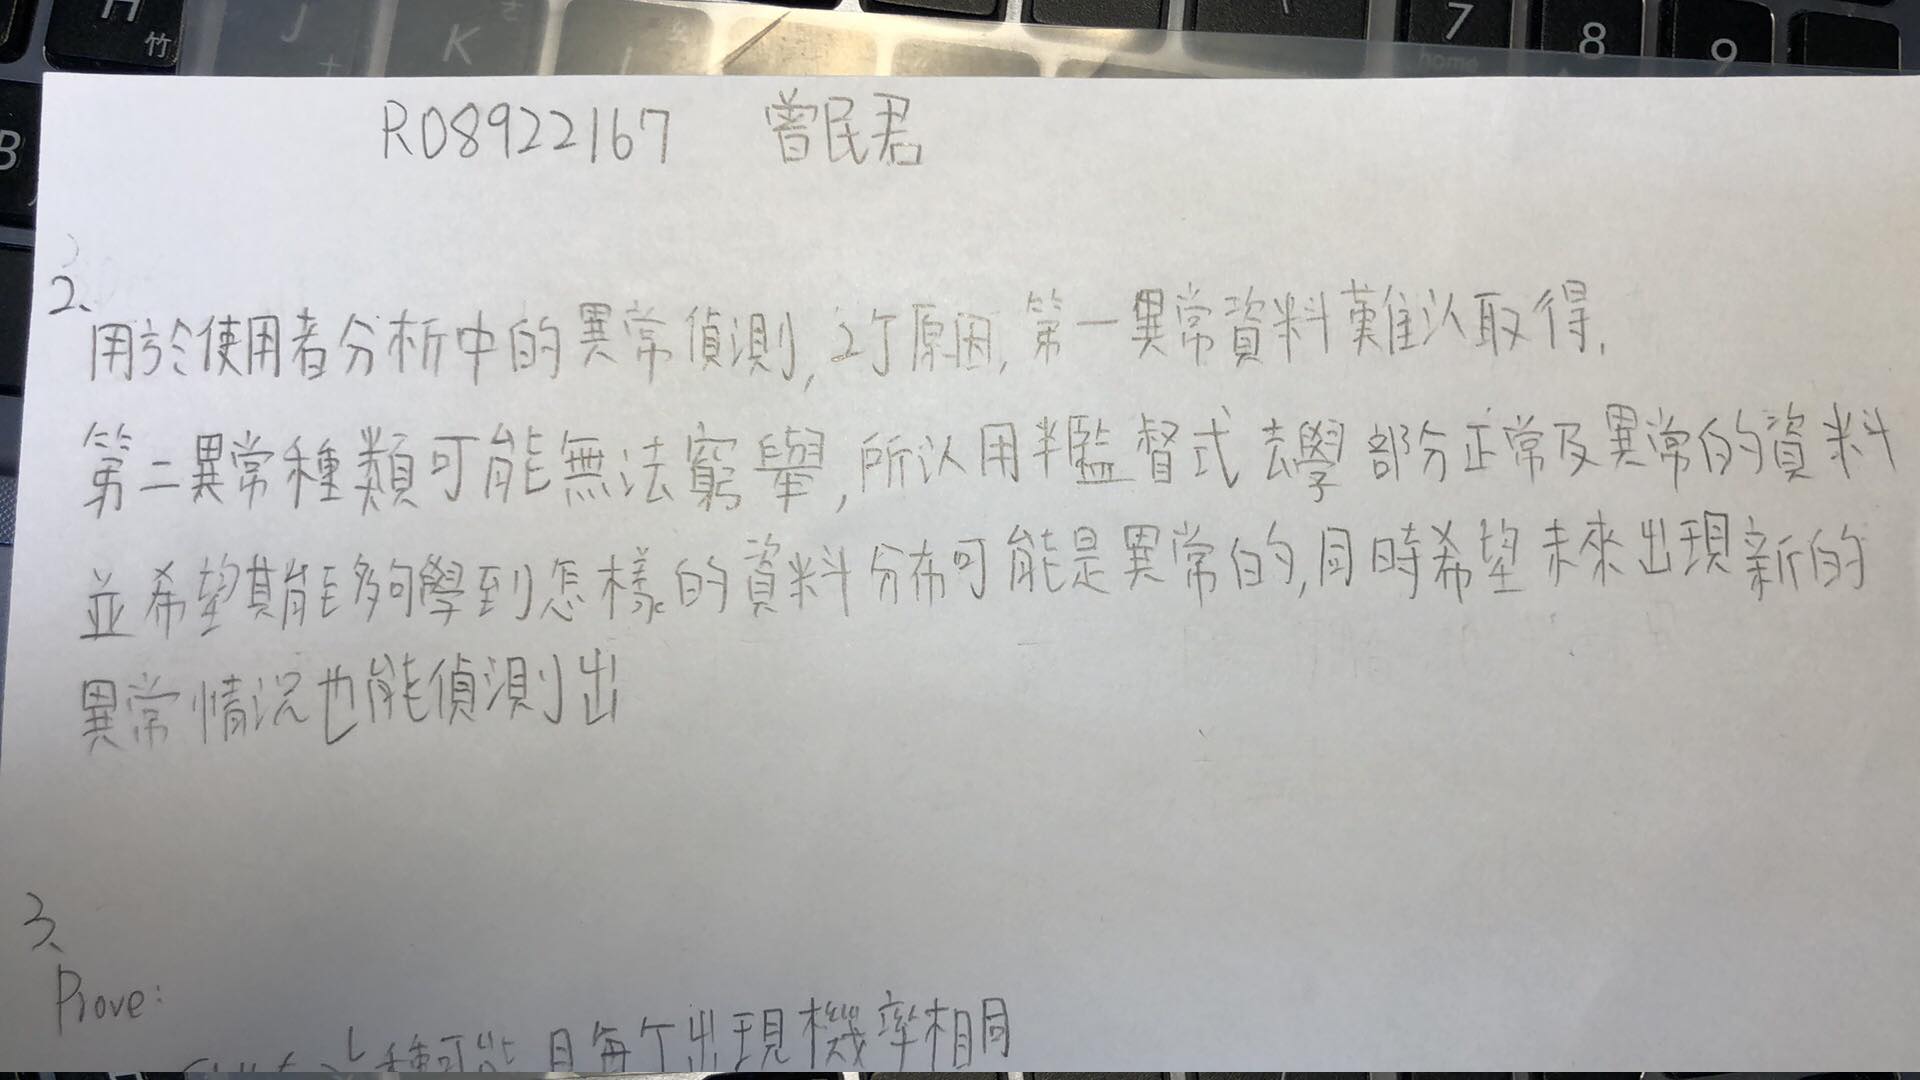 H 竹 J K 7 8 9
home
B
R08922167 曾民君
2、
用於使用者分析中的異常偵測, 2个原因, 第一異常資料難以取得,
第二異常種類可能無法窮舉, 所以用半監督式去學部分正常及異常的資料
並希望其能夠學到怎樣的資料分布可能是異常的, 同時希望未來出現新的
異常情況也能偵測出
3、
Prove:
種可能 且每个出現機率相同